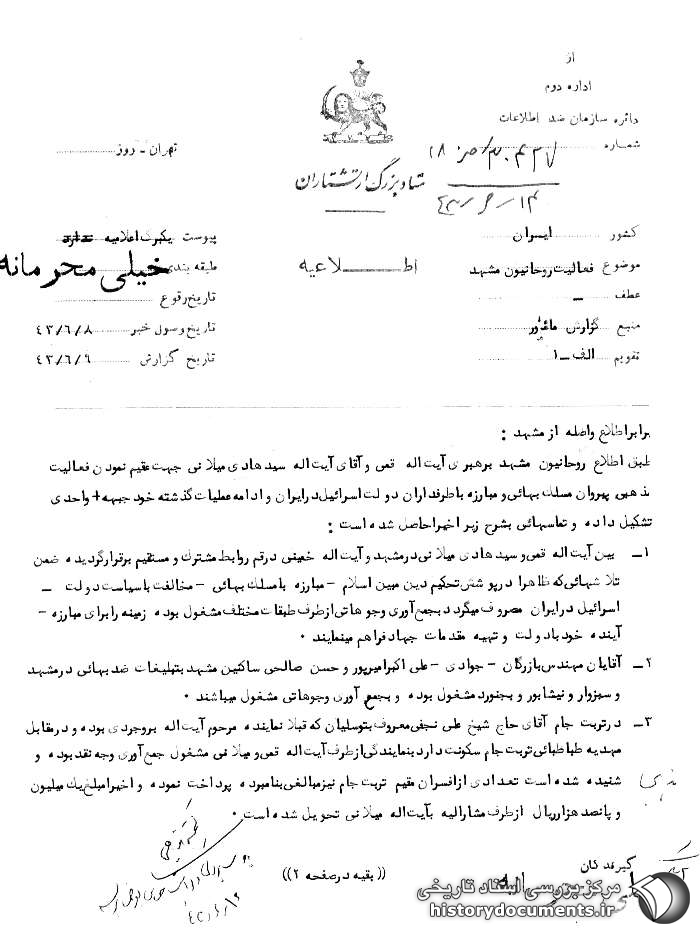 از
اداره دوم
دائره سازمان ضد اطلاعات
شماره
تهران - روز
ستاد بزرگ ارتشتاران
کشور ایران
پیوست یکبرگ اعلامیه ندارد
موضوع فعالیت روحانیون مشهد
اطلاعیه
طبقه بندی خیلی محرمانه
عطف -
تاریخ رقوع
منبع گزارش مأمور
تاریخ وصول خبر ۴۳/۶/۸
تقویم الف-۱
تاریخ گزارش ۴۳/۶/۹
برابر اطلاع واصله از مشهد :
طبق اطلاع روحانیون مشهد برهبری آیت اله قمی و آقای آیت اله سید هادی میلانی جهت عقیم نمودن فعالیت
مذهبی پیروان مسلک بهائی و مبارزه با طرفداران دولت اسرائیل در ایران و ادامه عملیات گذشته خود جبهه واحدی
تشکیل داده و تماسهائی بشرح زیر اخیرا حاصل شده است :
۱- بین آیت اله قمی و سید هادی میلانی در مشهد و آیت اله خمینی در قم روابط مشترک و مستقیم برقرار گردیده ضمن
تلاشهائی که ظاهرا در پوشش تحکیم دین مبین اسلام - مبارزه با مسلک بهائی - مخالفت با سیاست دولت -
اسرائیل در ایران مصروف میگردد بجمع آوری وجوهاتی از طرف طبقات مختلف مشغول بوده زمینه را برای مبارزه -
آینده خود با دولت و تهیه مقدمات جهاد فراهم مینمایند .
۲- آقایان مهندس بازرگان - جوادی - علی اکبر امیرپور و حسن صالحی ساکنین مشهد بتبلیغات ضد بهائی در مشهد
و سبزوار و نیشابور و بجنورد مشغول بوده و بجمع آوری وجوهاتی مشغول میباشند .
۳- در تربت جام آقای حاج شیخ علی نجفی معروف بتوسلیان که قبلا نماینده مرحوم آیت اله بروجردی بوده و در مقابل
مهدیه طباطبائی تربت جام سکونت دارد بنمایندگی از طرف آیت اله قمی و میلانی مشغول جمع آوری وجه نقد بوده و
شنیده شده است تعدادی از افسران مقیم تربت جام نیز مبالغی بنامبرده پرداخت نموده و اخیرا مبلغ یک میلیون
و پانصد هزار ریال از طرف مشارالیه بآیت اله میلانی تحویل شده است .
گیرندگان
(( بقیه در صفحه ۲ ))
مرکز بررسی اسناد تاریخی
historydocuments.ir